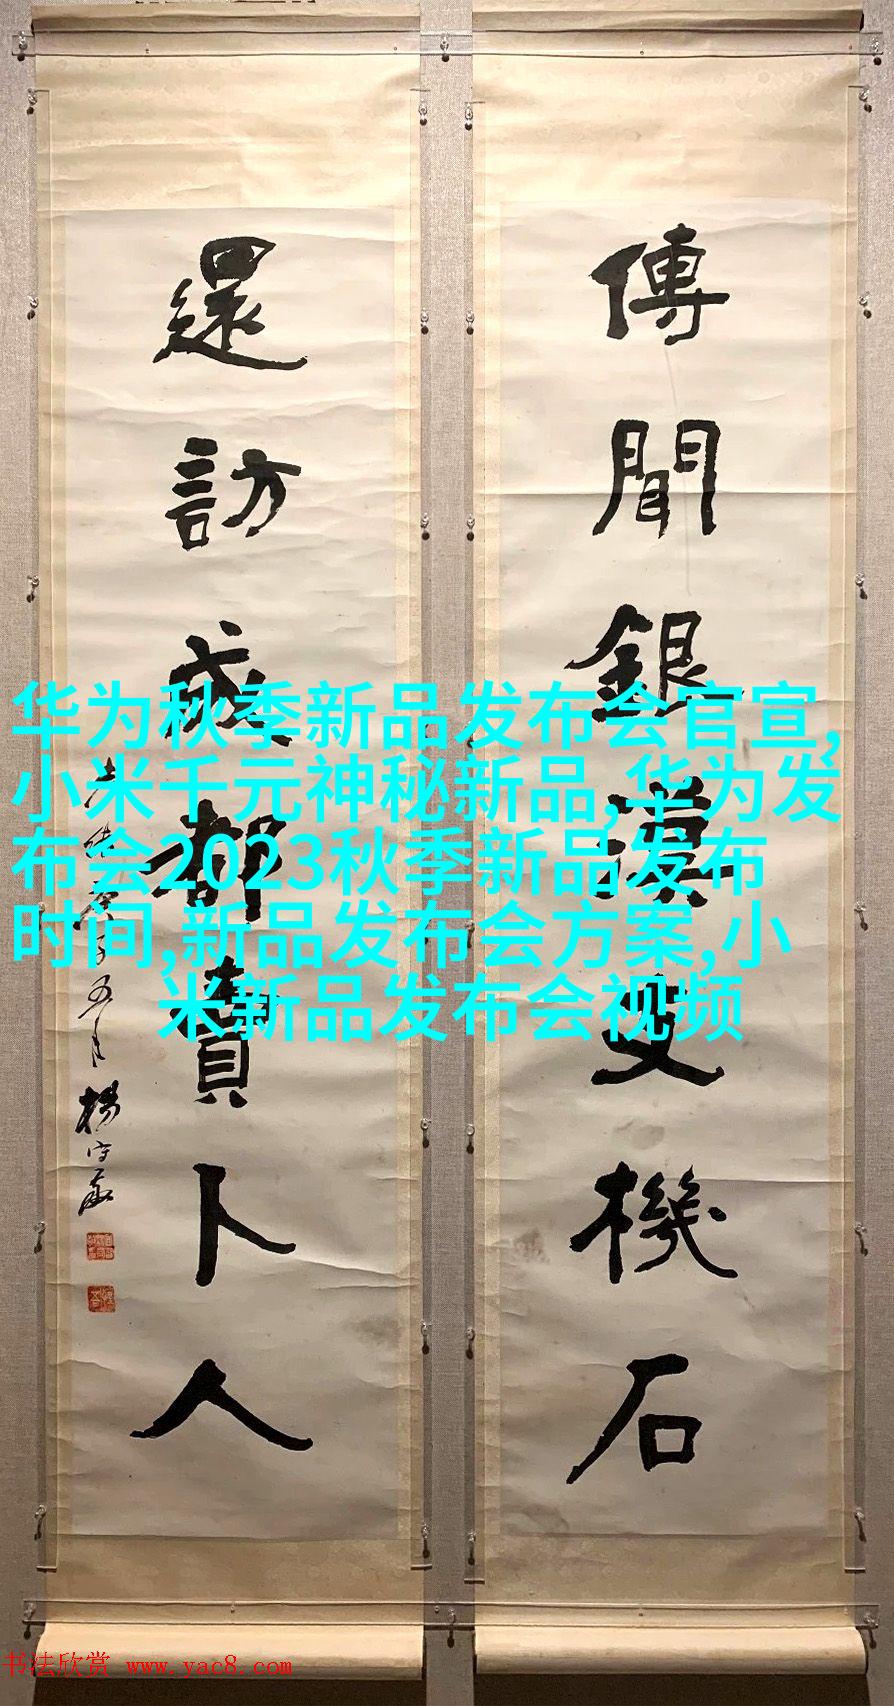 傳聞銀漢支機石
還訪成都賣卜人
光緒庚子五月楊守敬
华为秋季新品发布会官宣,
小米千元神秘新品,华为发
布会2023秋季新品发布
时间,新品发布会方案,小
米新品发布会视频
书法欣赏 www.yac8.com